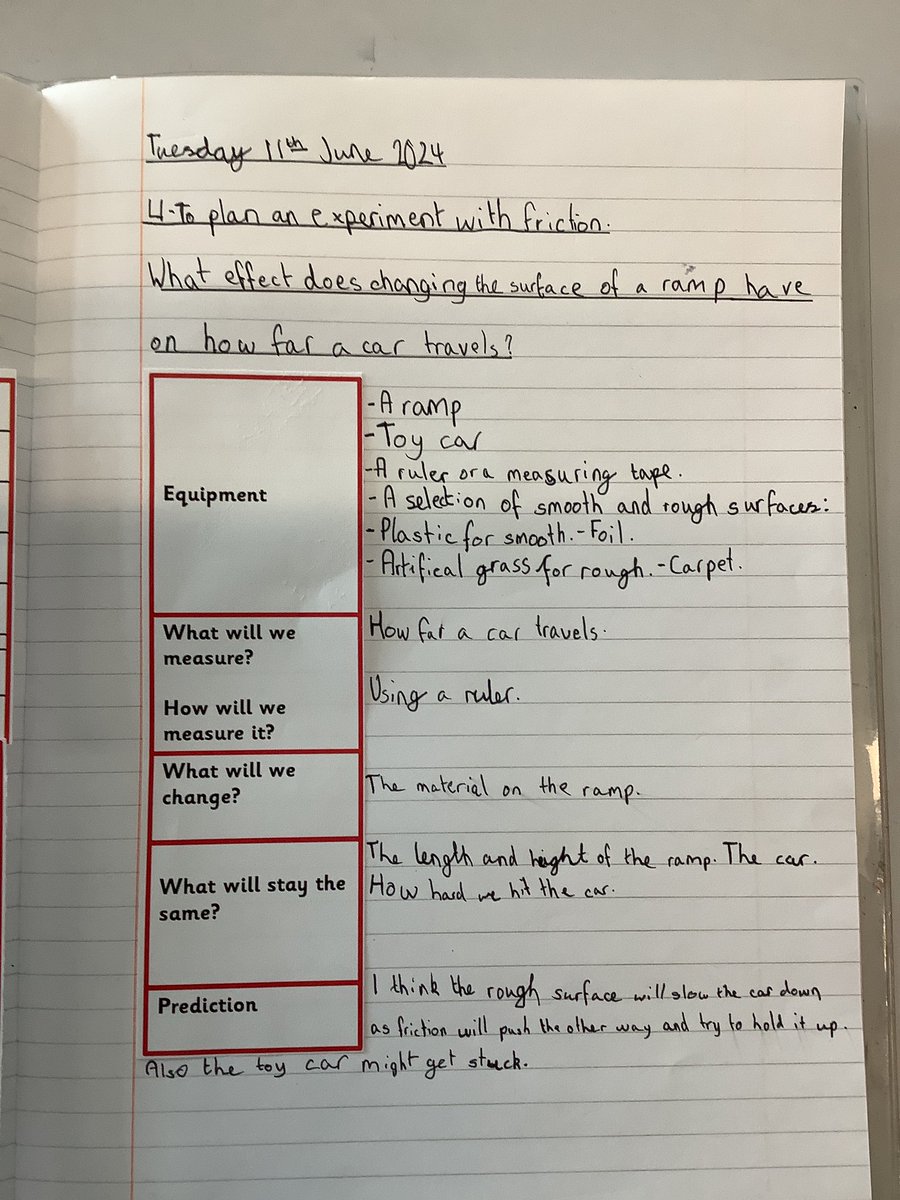 Tuesday 11th June 2024
LI-To plan an experiment with friction.
What effect does changing the surface of a ramp have
on how far a car travels?
Equipment
-A ramp
-Toy car
-A ruler or a measuring tape.
-A selection of smooth and rough surfaces:
-Plastic for smooth.-Foil.
-Artifical grass for rough.-Carpet.
What will we
measure?
How will we
measure it?
How far a car travels.
Using a ruler.
What will we
change?
The material on the ramp.
What will stay the
same?
The length and height of the ramp. The car.
How hard we hit the car.
Prediction
I think the rough surface will slow the car down
as friction will push the other way and try to hold it up.
Also the toy car might get stuck.